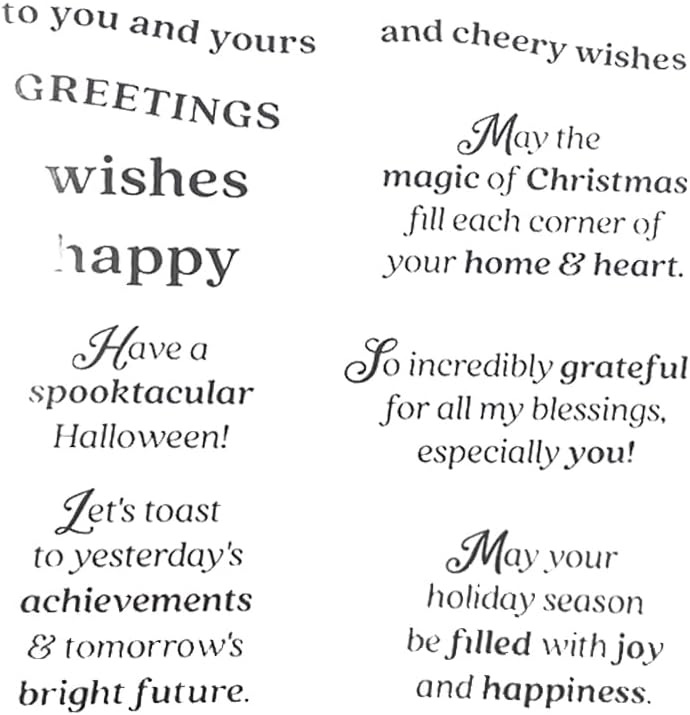 to you and yours
GREETINGS
wishes
happy
Have a
spooktacular
Halloween!
Let's toast
to yesterday's
achievements
& tomorrow's
bright future.
and cheery wishes
May the
magic of Christmas
fill each corner of
your home & heart.
So incredibly grateful
for all my blessings,
especially you!
May your
holiday season
be filled with joy
and happiness.